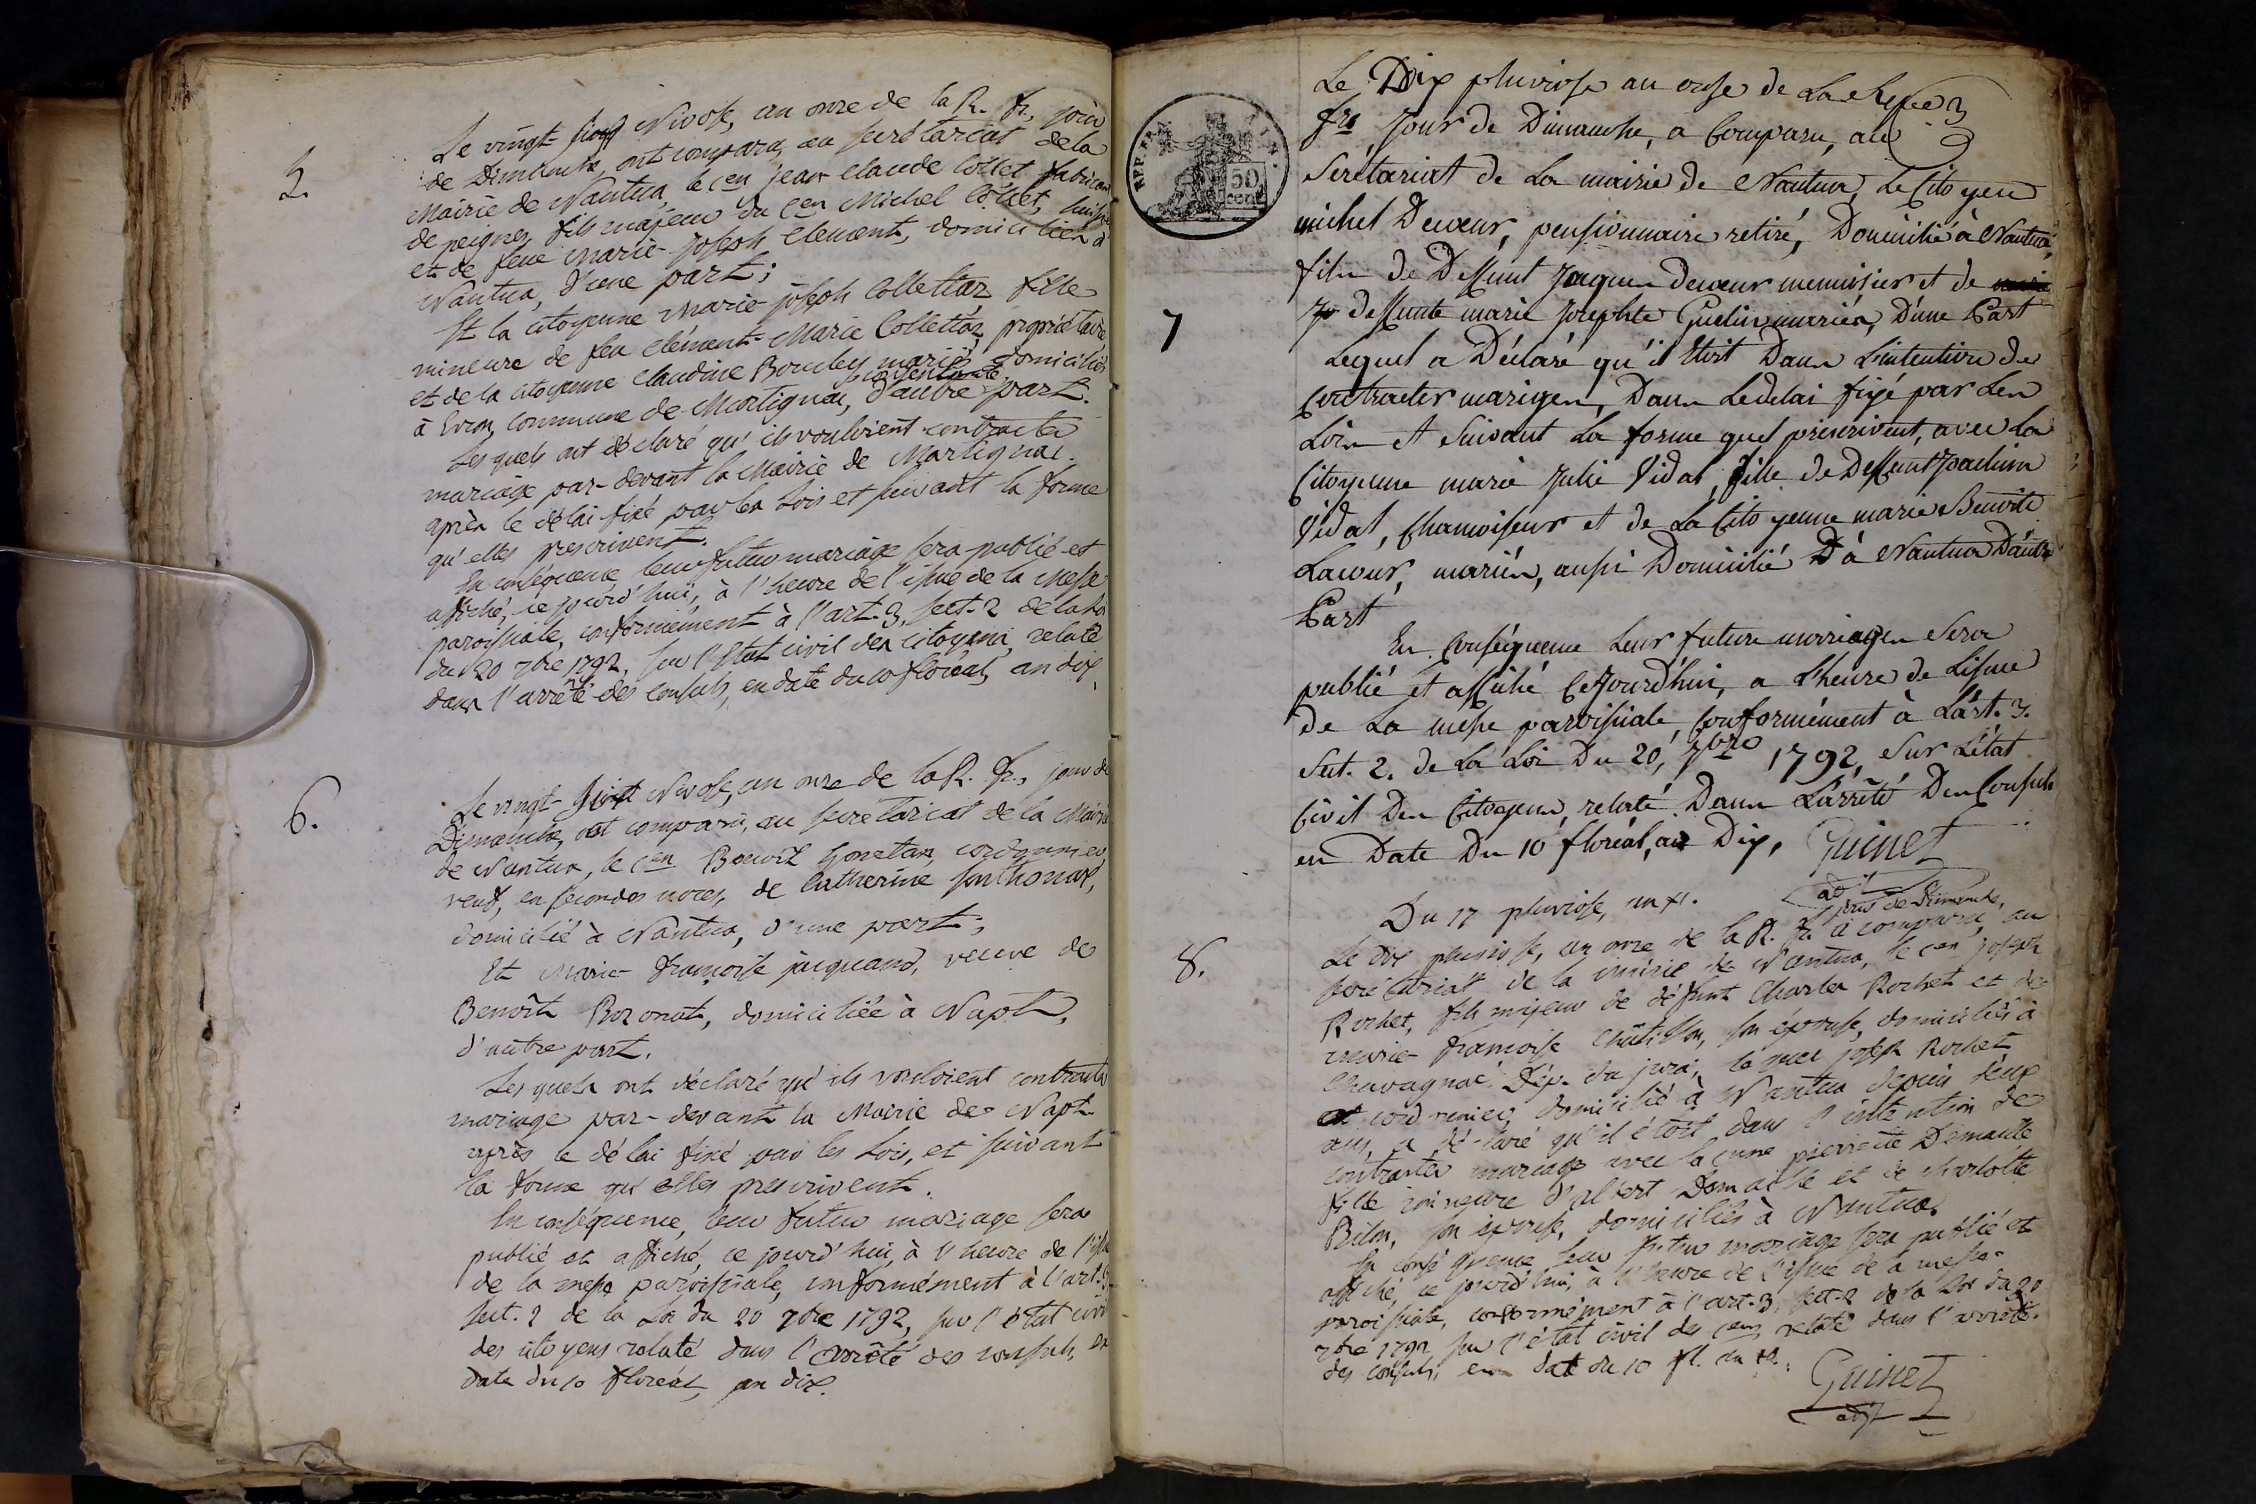 Le vingt Nivose, an onze de la R. fr., jour
de Dimanche, ont comparu, au secrétariat de la
Mairie de Nantua, le cen jean claude Collet fabricant
de peignes, fils majeur du cen Michel Collet,
et de feue Marie-joseph Clement, domiciliés à
Nantua, d'une part;
Et la citoyenne Marie-joseph Collettaz fille
mineure de feu clément-Marie Collettaz, propriétaire
et de la citoyenne Claudine Boucley mariés, domiciliés
à Evron, commune de Martignac, d'autre part.
Lesquels ont déclaré qu'ils vouloient contracter
mariage par-devant la Mairie de Martignac.
après le délai fixé par les Lois et suivant la forme
qu'elles prescrivent.
En conséquence, leur futur mariage sera publié et
affiché, ce jourd'hui, à l'heure de l'issue de la Messe
paroissiale, conformément à l'art. 3, sect. 2 de la Loi
du 20 7bre 1792, sur l'Etat civil des citoyens, relaté
dans l'arrêté des consuls, en date du 10 floréal, an dix.
6.
Le vingt- Nivose, an onze de la R. fr., jour de
Dimanche, ont comparu, au secrétariat de la Mairie
de Nantua, le cen Benoit Gonetan, cordonnier,
veuf, en secondes noces, de Catherine Santhonax,
domicilié à Nantua, d'une part;
Et Marie françoise jacquand, veuve de
Benoît Bozonat, domiciliée à Napt,
d'autre part.
Lesquels ont déclaré qu'ils vouloient contracter
mariage par-devant la Mairie de Napt
après le délai fixé par les Lois, et suivant
la forme qu'elles prescrivent.
En conséquence, leur futur mariage sera
publié et affiché, ce jourd'hui, à l'heure de l'issue
de la messe paroissiale, conformément à l'art. 3
sect. 2 de la Loi du 20 7bre 1792, sur l'état civil
des citoyens relaté dans l'arrêté des consuls, en
date du 10 floréal, an dix.
REP. FRA.
50
cent
Le Dix pluviose an onse de La
fre Jour de Dimanche, a Comparu, au
Secrétariat de La mairie de Nantua, Le Citoyen
michel Decoeur, pensionnaire retiré, Domicilié à Nantua,
fils de Deffunt Jaques decoeur menuisier et de
deffunte marie Josephte Guelin mariés, D'une Part
7
Lequel a Déclaré qu'il Etoit Dans L'intention de
contracter mariage, Dans Le délai fixé par Les
Lois et Suivant La forme quel prescrivent, avec La
Citoyenne marie Julie Vidal, fille de Deffunt Joachim
Vidal, Chamoiseur et de La Citoyenne marie Benoite
Lacour, mariés, aussi Domicilié à Nantua D'autre
Part
En Conséquence Leur future mariage Sera
publié et affiché CeJourd'hui, a L'heure de L'issue
de La messe paroissiale, Conformément à L'art. 3.
Sect. 2. de La Loi Du 20, 7bre 1792, Sur L'état
Civil Des Citoyens, relaté Dans L'arrêté Des Consuls
en Date Du 10 floréal, an Dix, Guinet
adjt
Du 17 pluviose, an XI.
jour de Dimanche,
8.
Le dix pluviose, an onze de la R. fr. a comparu, au
secrétariat de la mairie de Nantua, le cen joseph
Rochet, fils majeur de défunt Charles Rochet et de
marie-françoise Châtillon, son épouse, domiciliés à
Chavagnac, Dép. du jura; le joseph Rochet
cordonnier, domicilié à Nantua depuis deux
ans, a déclaré qu'il étoit dans l'intention de
contracter mariage avec la cenne pierrette Domaillé
fille mineure d'albert Domaillé et de charlotte
Bilon, son épouse, domiciliés à Nantua.
En conséquence leur futur mariage sera publié et
affiché, ce jourd'hui, à l'heure de l'issue de la messe
paroissiale, conformément à l'art. 3, sect. 2 de la Loi du 20
7bre 1792 sur l'état civil des cens, relaté dans l'arrêté
des consuls, en date du 10 fl. an 10.
Guinet
adjt